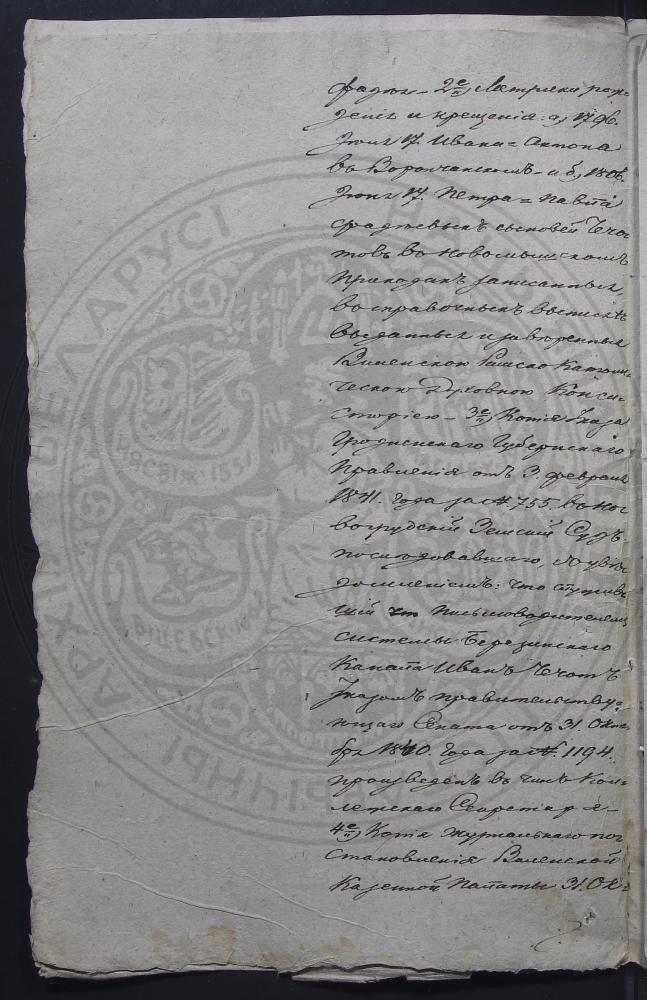 фадея – 2е, Метрики рож-
денія и крещенія: а, 1796.
Іюня 17. Ивана = Антона
въ Ворончанскомъ – и б, 1806.
Іюня 17. Петра = Павла
Фадеевыхъ сыновей Чечо-
товъ въ Новомышскомъ
приходахъ записанныхъ,
въ справочныхъ выпискахъ
выданныхъ и завѣренныхъ
Виленскою Римско Католи-
ческою Духовною Конси-
сторіею – 3е, Копія Указа
Гродненскаго Губернскаго
Правленія отъ 3. февраля
1841. года за № 755. въ Но-
вогрудскій Земскій Судъ
послѣдовавшаго, съ увѣ-
домленіемъ: что служив-
шій Письмоводителемъ
системы Березинскаго
Канала Иванъ Чечотъ
Указомъ правительству-
ющаго Сената отъ 31. Октя-
бря 1840. года за № 1194.
произведенъ въ чинъ Кол-
лежскаго Секретаря –
4е, Копія журнальнаго пос-
становленія Виленской
Казенной Палаты 31. Ок-